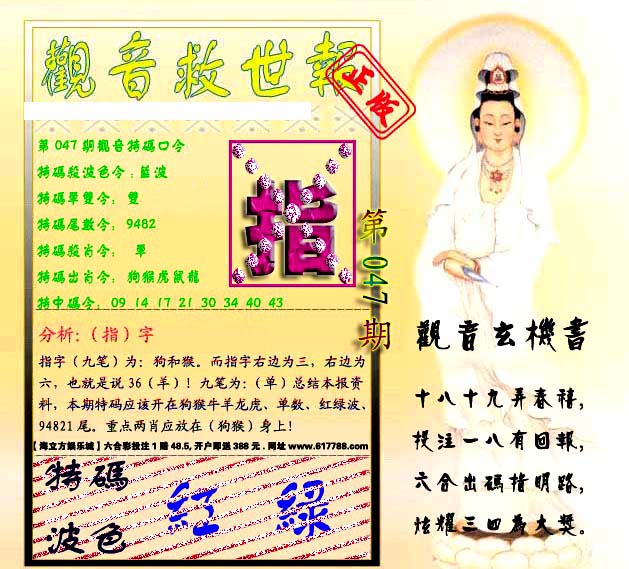 觀音救世報
正版
第047期觀音特碼口令
特碼殺波色令:藍波
特碼單雙令: 雙
特碼尾數令: 9482
特碼殺肖令: 單
特碼出肖令: 狗猴虎鼠龍
特中碼令: 09 14 17 21 30 34 40 43
指
第047期
分析:(指)字
指字(九笔)为:狗和猴。而指字右边为三,右边为
六,也就是说36(羊)!九笔为:(单)总结本报资
料,本期特码应该开在狗猴牛羊龙虎、单数、红绿波、
94821尾。重点两肖应放在(狗猴)身上!
【海立方娱乐城】六合彩投注1赔48.5,开户即送388元,网址www.617788.com
特碼
波色
紅 綠
觀音玄機書
十八十九弄春禧,
投注一八有回報,
六合出碼指明路,
炫耀三四為大獎。